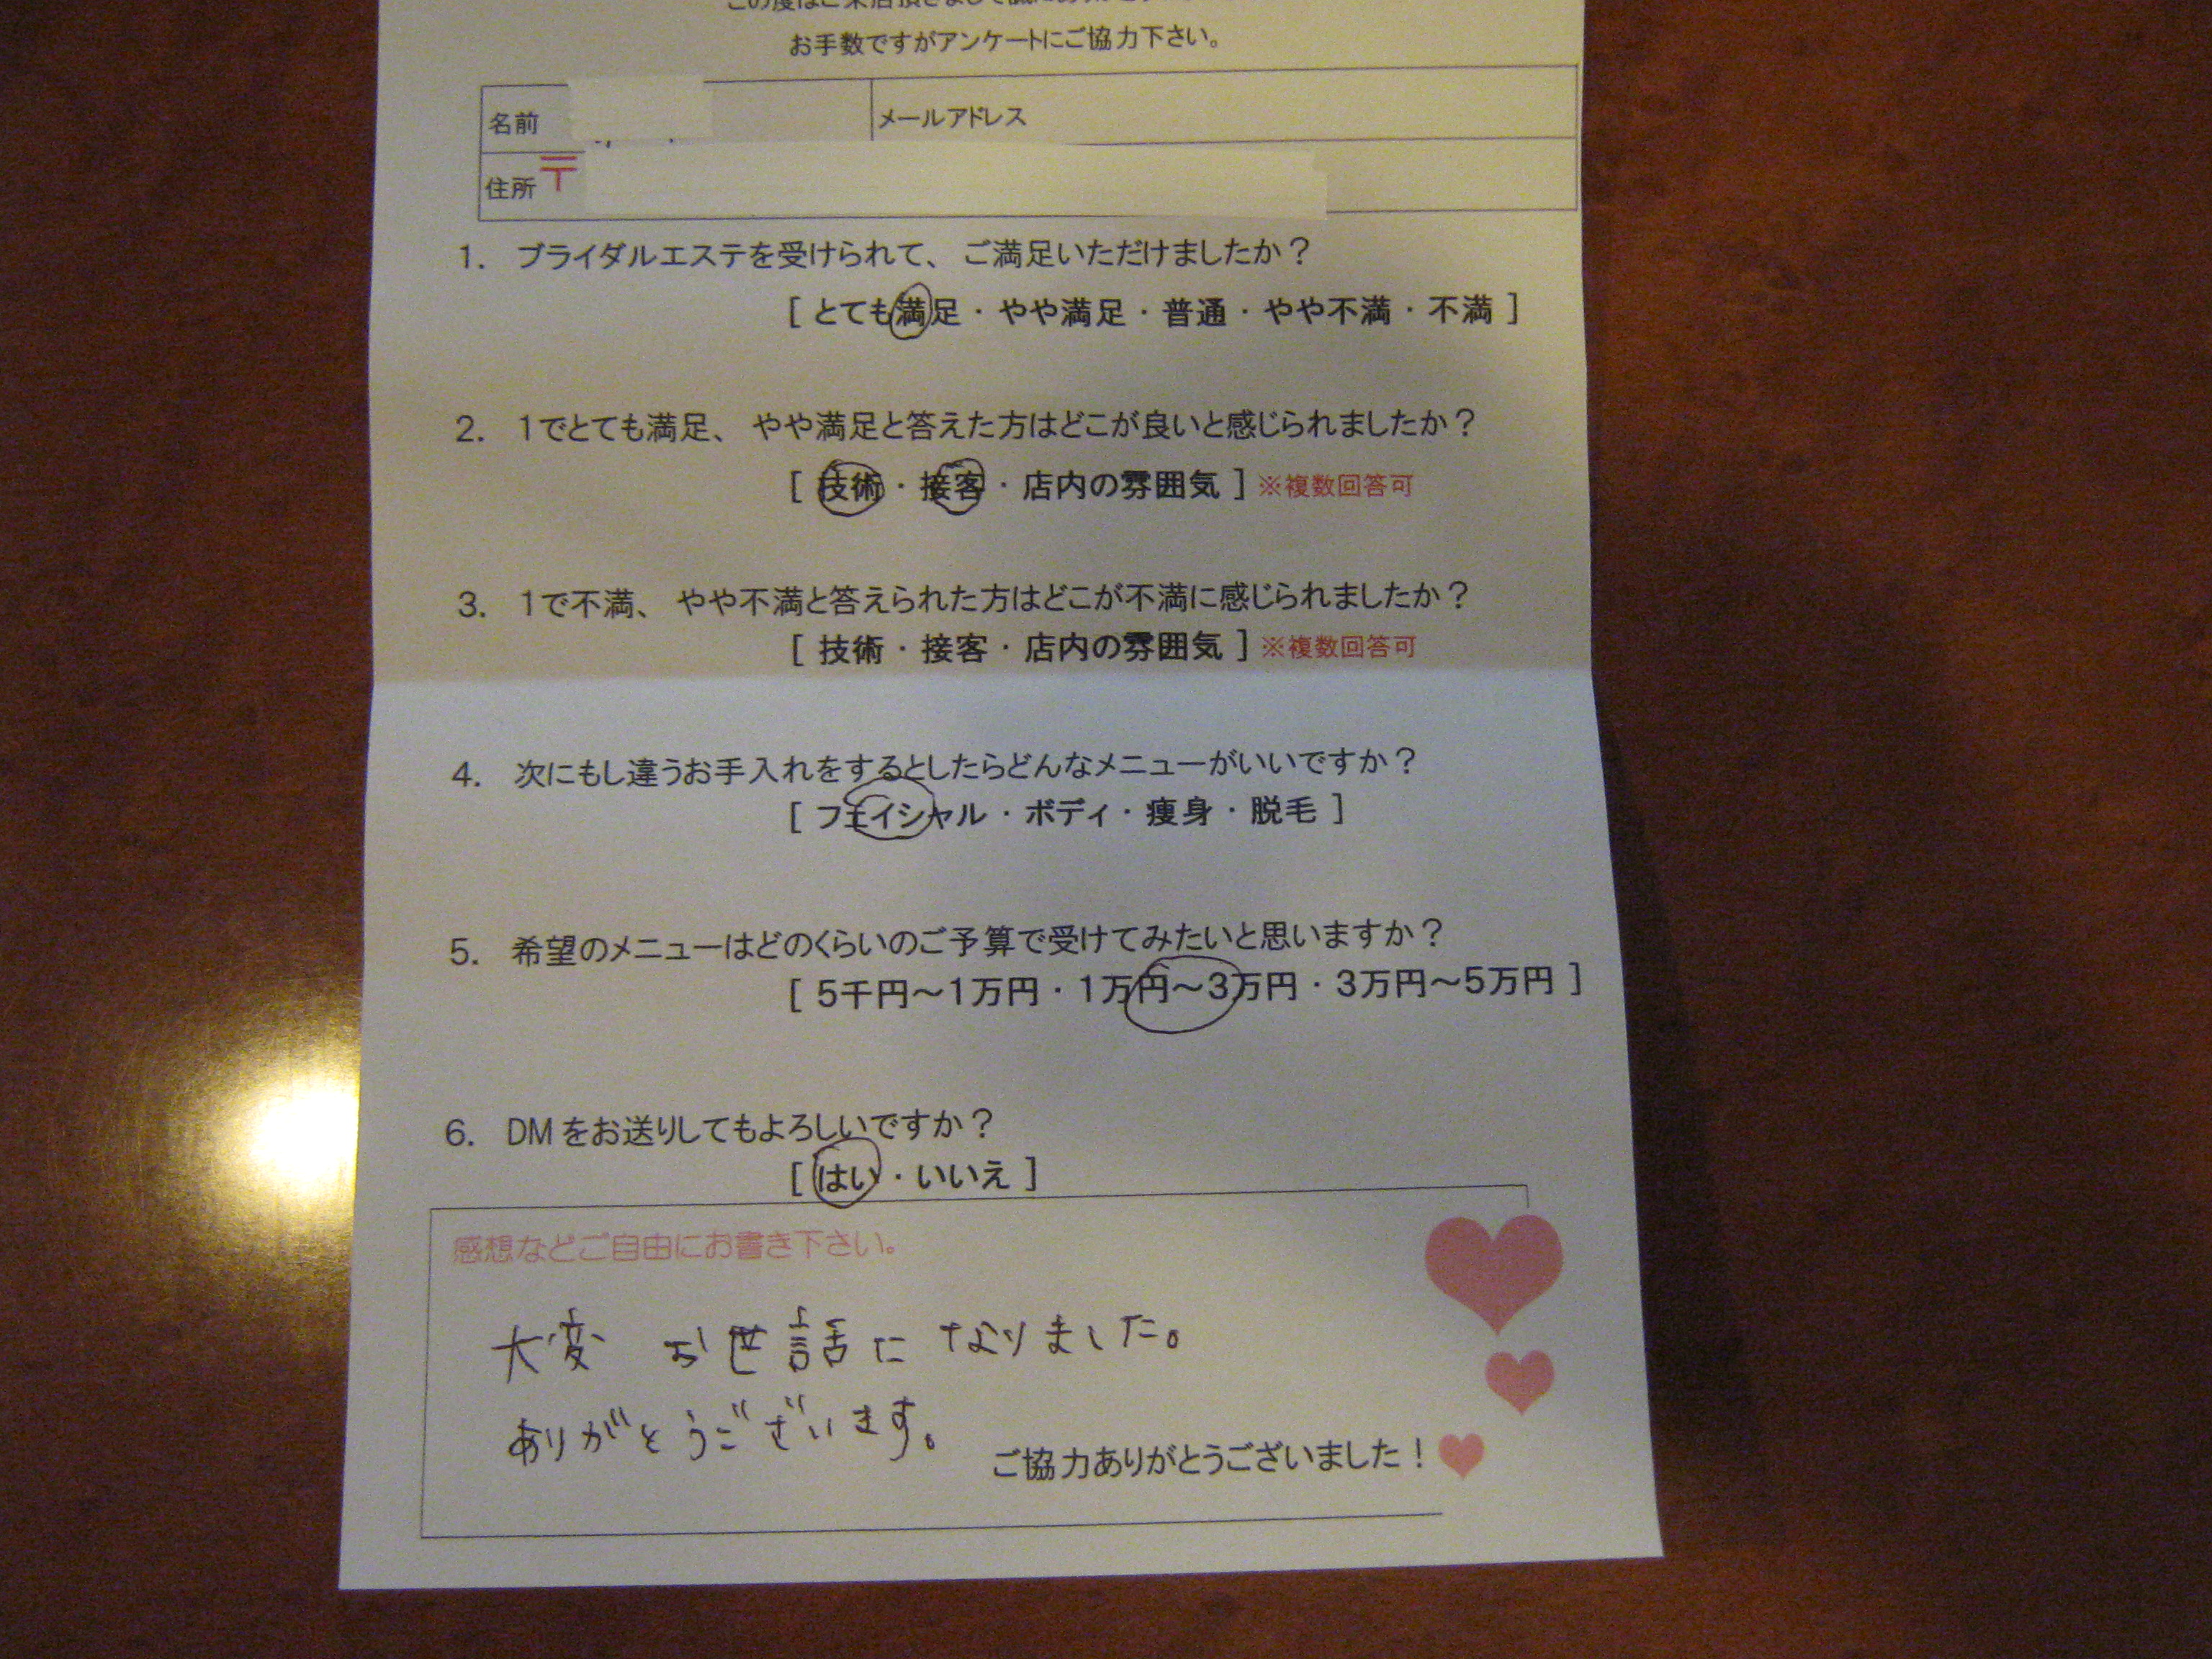 この度はご来店頂きまして誠に
お手数ですがアンケートにご協力下さい。
名前 メールアドレス
住所 〒
1. ブライダルエステを受けられて、ご満足いただけましたか？
[ とても満足・やや満足・普通・やや不満・不満 ]
2. 1でとても満足、やや満足と答えた方はどこが良いと感じられましたか？
[ 技術・接客・店内の雰囲気 ] ※複数回答可
3. 1で不満、やや不満と答えられた方はどこが不満に感じられましたか？
[ 技術・接客・店内の雰囲気 ] ※複数回答可
4. 次にもし違うお手入れをするとしたらどんなメニューがいいですか？
[ フェイシャル・ボディ・痩身・脱毛 ]
5. 希望のメニューはどのくらいのご予算で受けてみたいと思いますか？
[ 5千円～1万円・1万円～3万円・3万円～5万円 ]
6. DMをお送りしてもよろしいですか？
[ はい・いいえ ]
感想などご自由にお書き下さい。
大変 お世話に なりました。
ありがとうございます。
ご協力ありがとうございました！